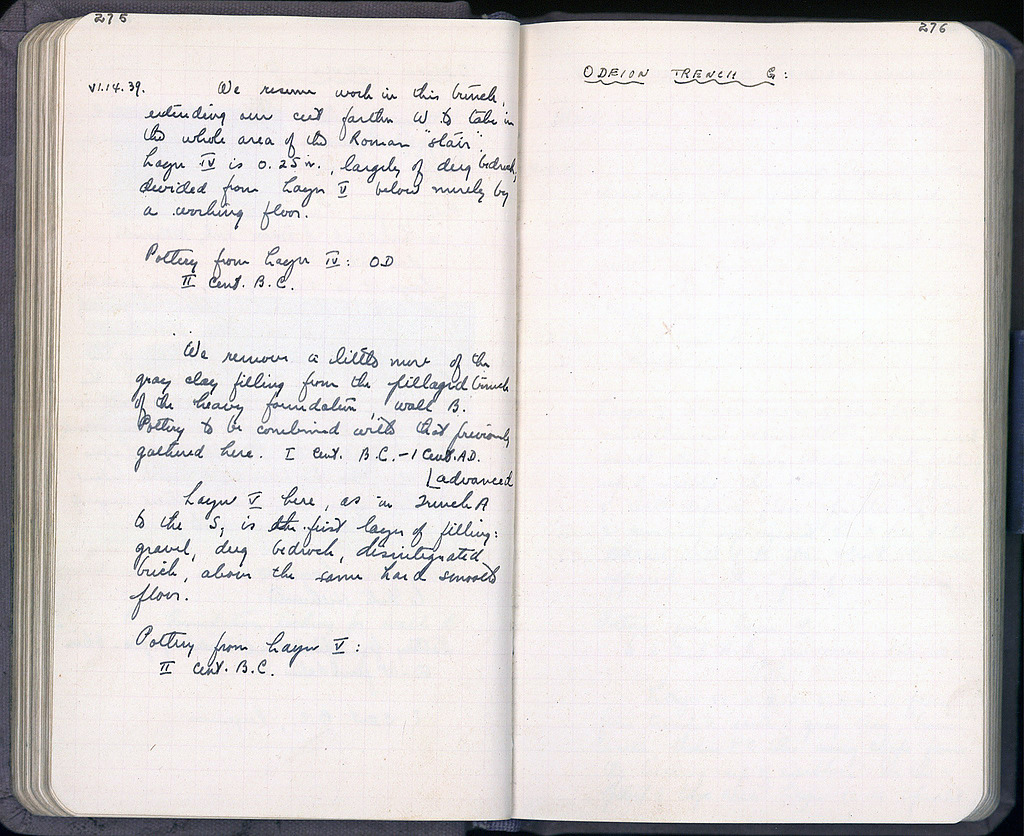 275
VI.14.39. We resume work in this trench,
extending our cut farther W to take in
the whole area of the Roman "stair".
Layer IV is 0.25 m., largely of dug bedrock,
divided from Layer V below merely by
a working floor.
Pottery from Layer IV: OD
II Cent. B.C.
We remove a little more of the
gray clay filling from the pillaged trench
of the heavy foundation, wall B.
Pottery to be combined with that previously
gathered here. I Cent. B.C.-I Cent. A.D.
[advanced
Layer V here, as in Trench A
to the S, is the first layer of filling:
gravel, dug bedrock, disintegrated
brick, above the same hard smooth
floor.
Pottery from Layer V:
II Cent. B.C.
276
ODEION TRENCH G: